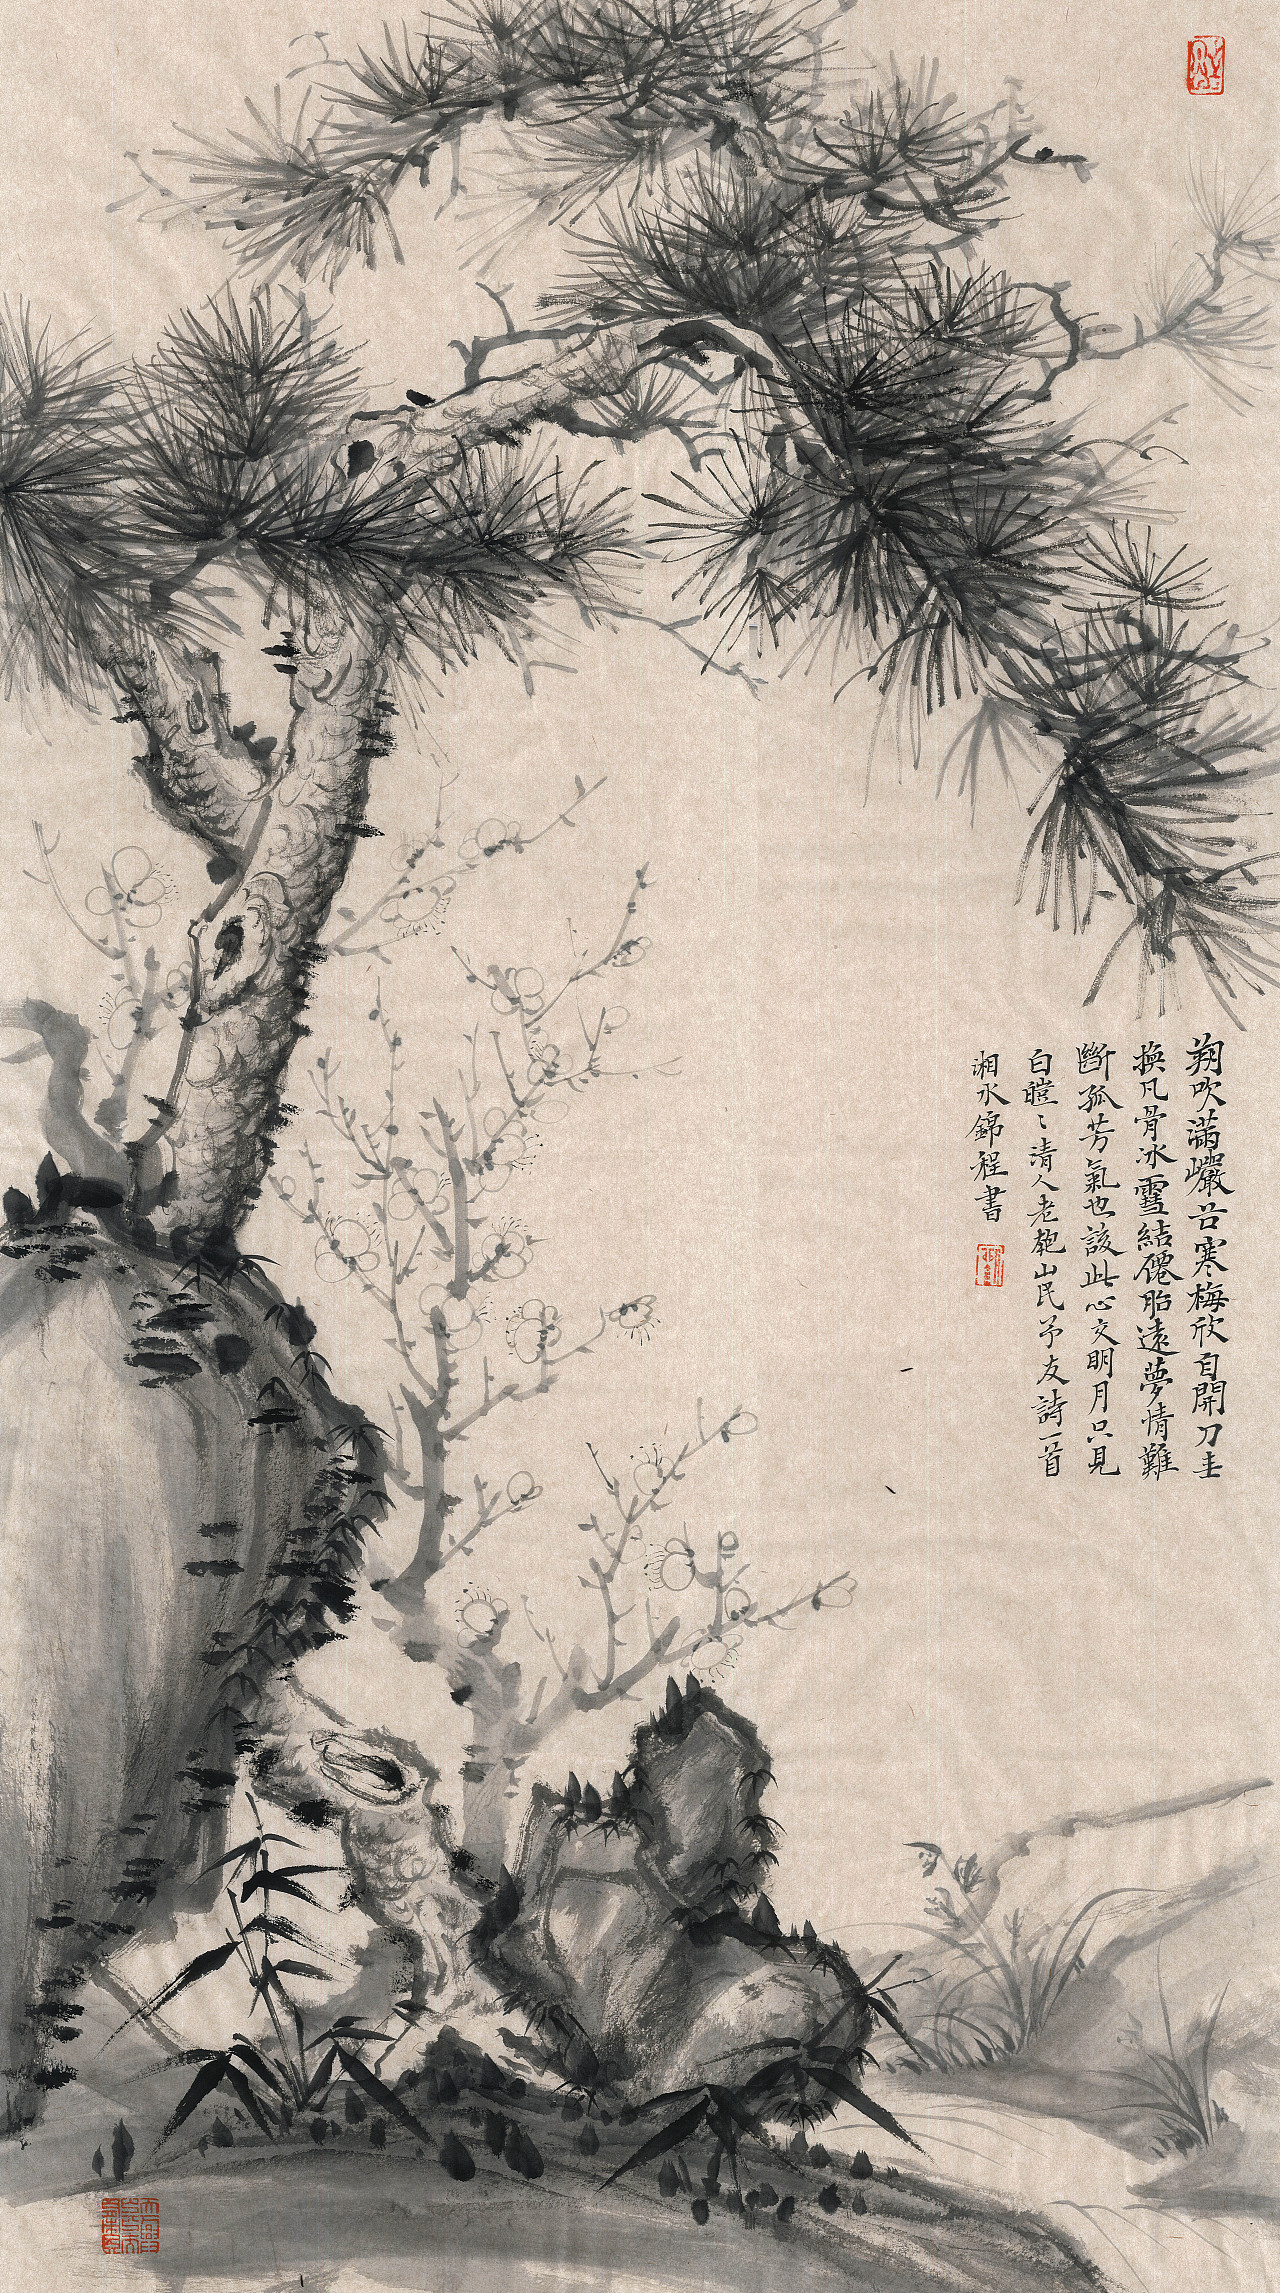 朔吹滿巖谷寒梅欣自開刀圭
換凡骨冰雪結僊胎遠夢情難
斷孤芳氣也該此心交明月只見
白皚〻清人老匏山民予友詩一首
湘水錦程書